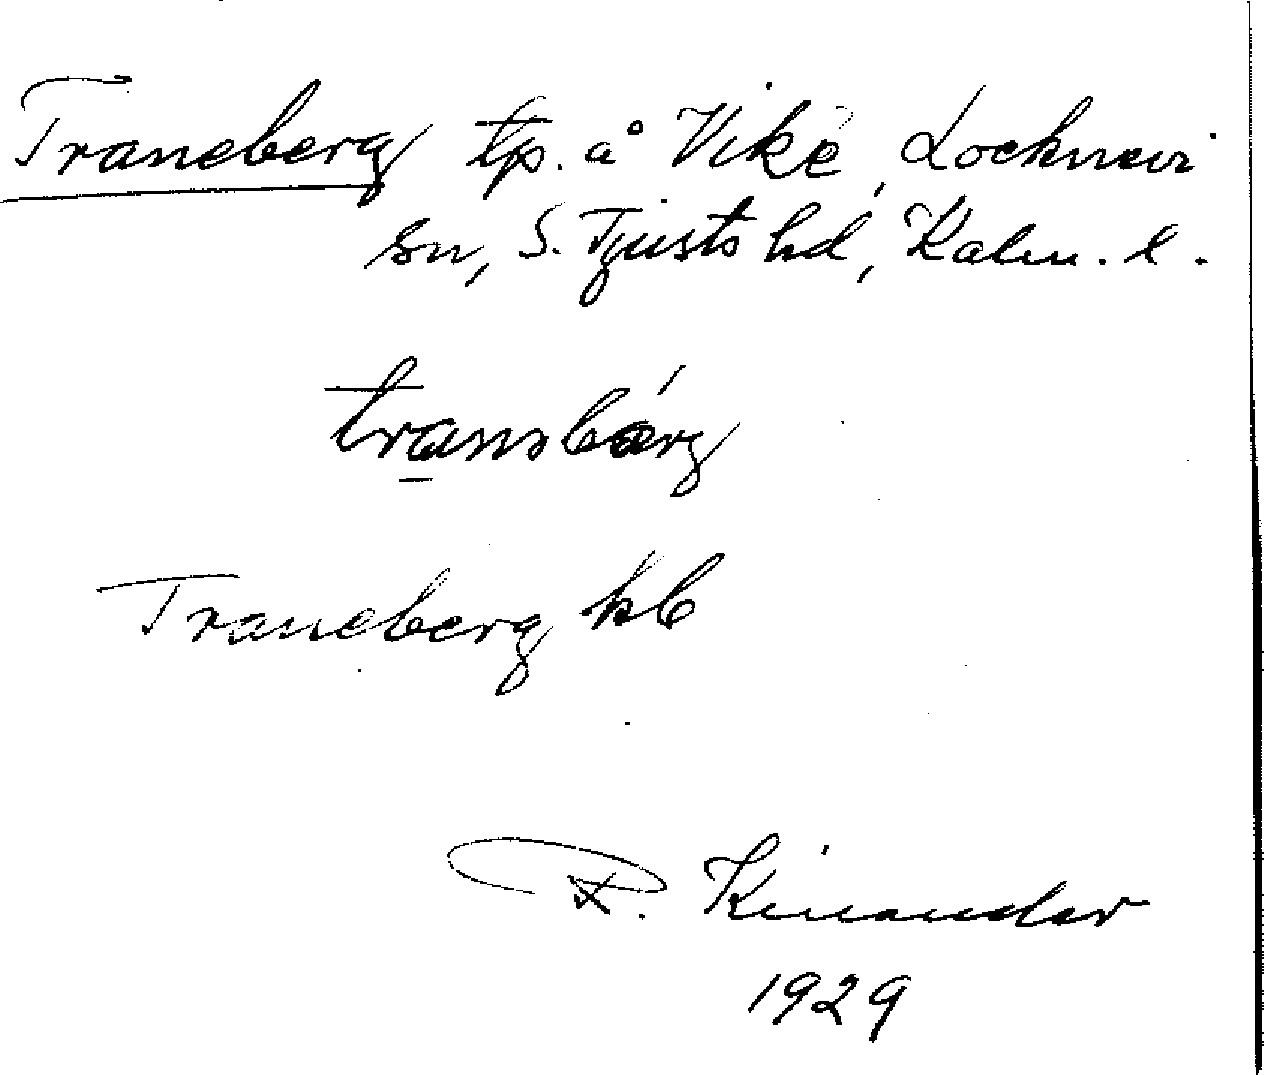 Traneberg tp. å Vike, Locknevi
sn, S. Tjusts hd, Kalm. l.
transbärg
Traneberg kb
R. Kinander
1929